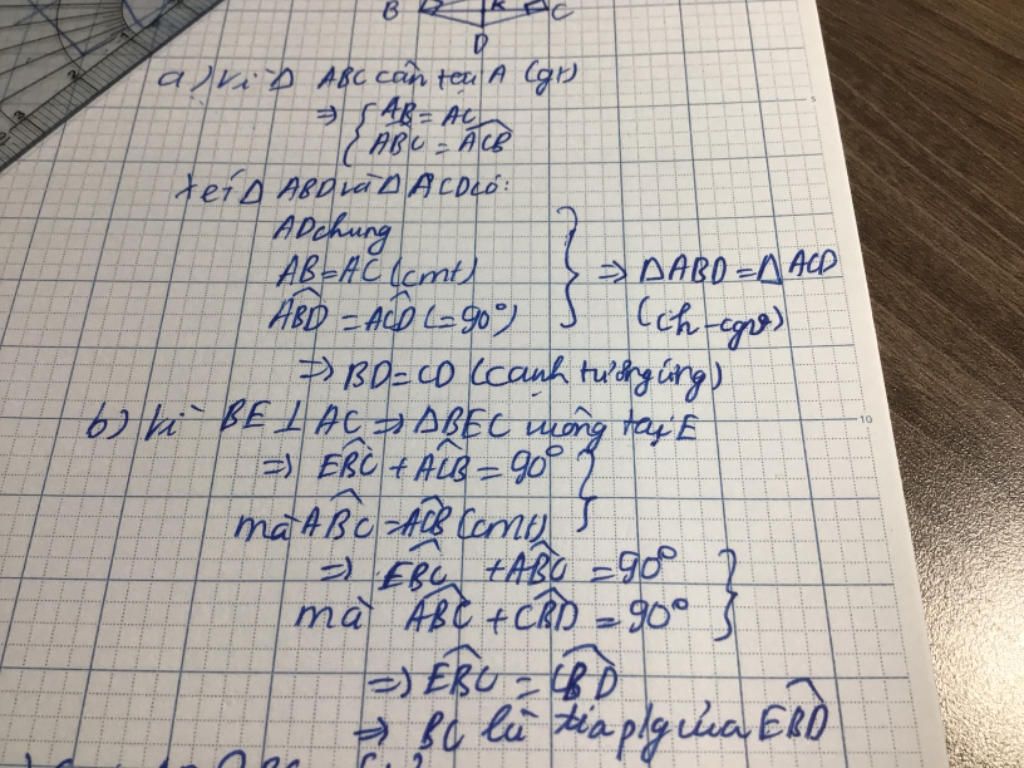 B K C
D
a) Vì Δ ABC cân tại A (gt)
⇒ { AB = AC
ABC = ACB
Xét Δ ABD và Δ ACD có:
AD chung
AB = AC (cmt)
ABD = ACD (= 90°)
} ⇒ ΔABD = ΔACD
(ch - cgv)
⇒ BD = CD (cạnh tương ứng)
b) Vì BE ⊥ AC ⇒ ΔBEC vuông tại E
⇒ EBC + ACB = 90°
mà ABC = ACB (cmt)
⇒ EBC + ABC = 90°
mà ABC + CBD = 90°
⇒ EBC = CBD
⇒ BC là tia p/g của EBD
5
10
2
3